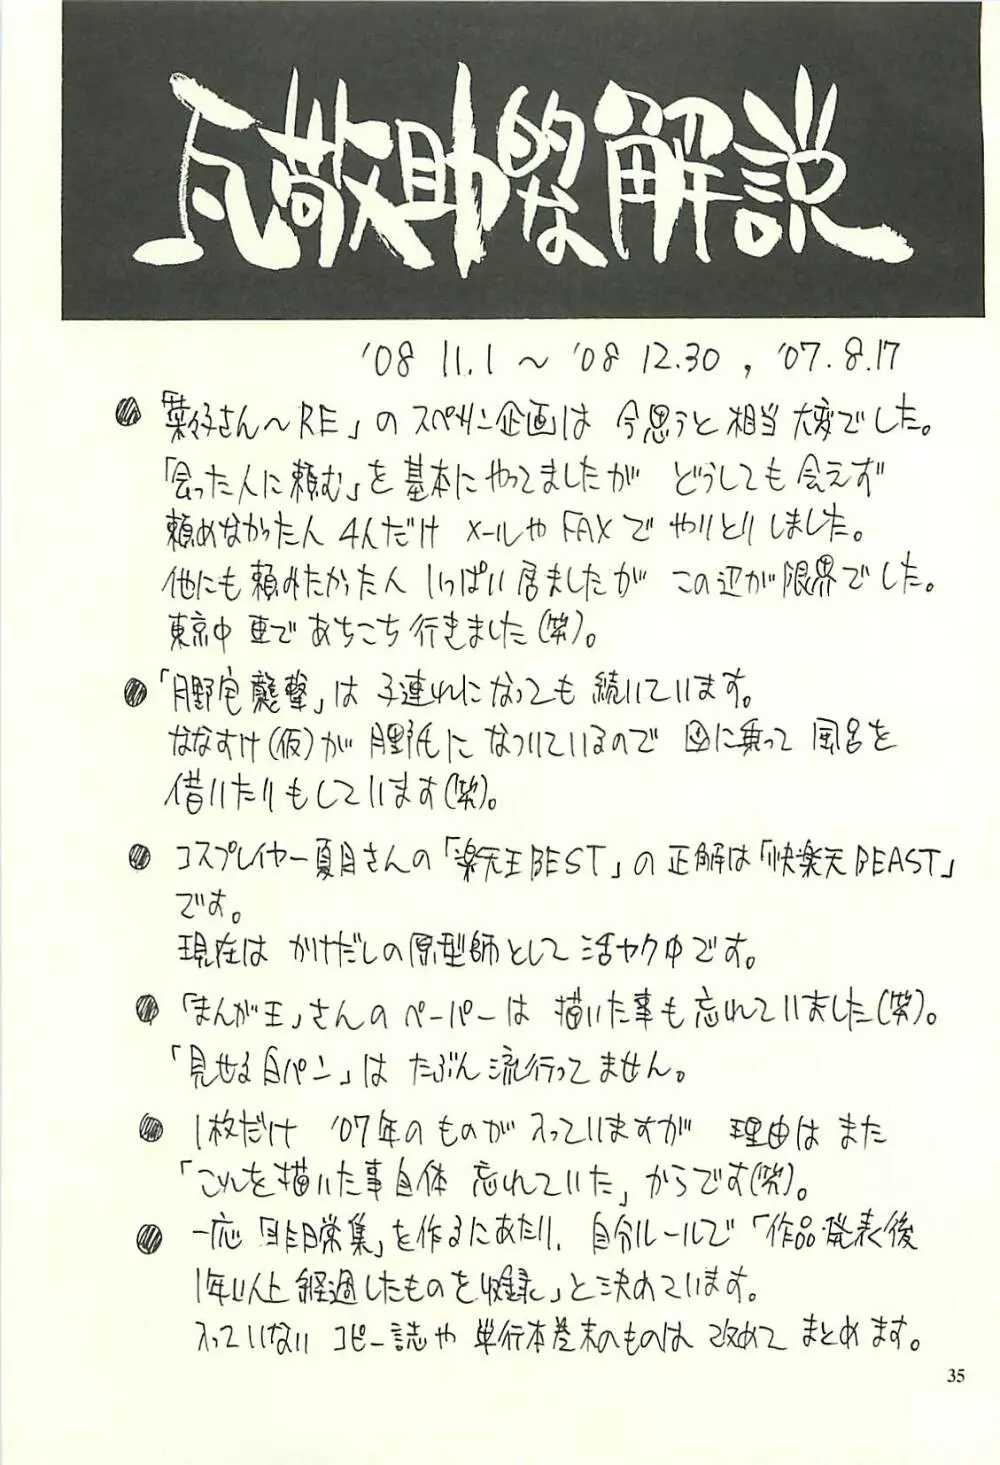 瓦敬助的な解説
'08 11.1 〜 '08 12.30 , '07.8.17
●「菜々子さん〜RE」のスペサン企画は 今思うと相当大変でした。
「会った人に頼む」を基本にやってましたが どうしても会えず
頼めなかった人 4人だけ メールやFAXで やりとりしました。
他にも頼みたかった人 いっぱい居ましたが この辺が限界でした。
東京中 車であちこち行きました(笑)。
●「月野宅襲撃」は 子連れになっても 続いています。
ななすけ(仮)が 月野氏に なついているので 図に乗って 風呂を
借りたりもしています(笑)。
● コスプレイヤー夏目さんの「楽天王BEST」の正解は「快楽天BEAST」
です。
現在は かけだしの原型師として 活ヤク中です。
●「まんが王」さんのペーパーは 描いた事も忘れていました(笑)。
「見せる白パン」は たぶん流行ってません。
● 1枚だけ '07年のものが入っていますが 理由は また
「これを描いた事自体 忘れていた」からです(笑)。
● 一応「非日常集」を作るにあたり、自分ルールで「作品発表後
1年以上経過したものを収録」と決めています。
入っていない コピー誌や 単行本巻末のものは 改めて まとめます。
35